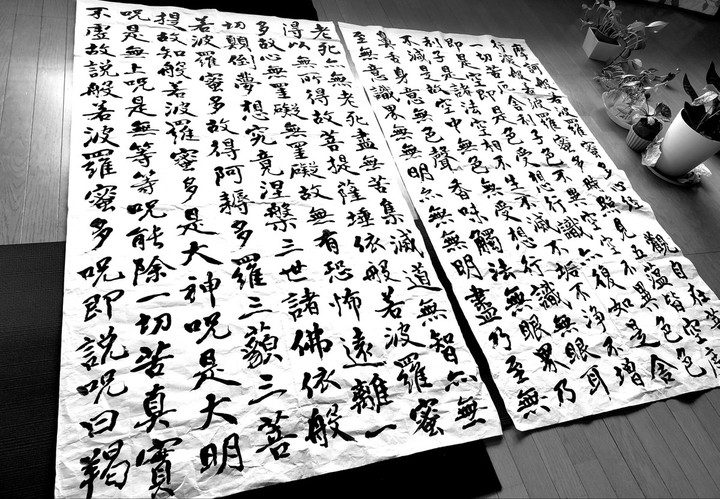 摩訶般若波羅蜜多心經 觀自在菩
行深般若波羅蜜多時照見五蘊皆空度
一切苦厄舍利子色不異空空不異色色
即是空空即是色受想行識亦復如是舍
利子是諸法空相不生不滅不垢不淨不增
不減是故空中無色無受想行識無眼耳
鼻舌身意無色聲香味觸法無眼界乃
至無意識界無無明亦無無明盡乃至無
老死亦無老死盡無苦集滅道無智亦無
得以無所得故菩提薩埵依般若波羅蜜
多故心無罣礙無罣礙故無有恐怖遠離一
切顛倒夢想究竟涅槃三世諸佛依般
若波羅蜜多故得阿耨多羅三藐三菩
提故知般若波羅蜜多是大神呪是大明
呪是無上呪是無等等呪能除一切苦真實
不虛故説般若波羅蜜多呪即説呪曰羯